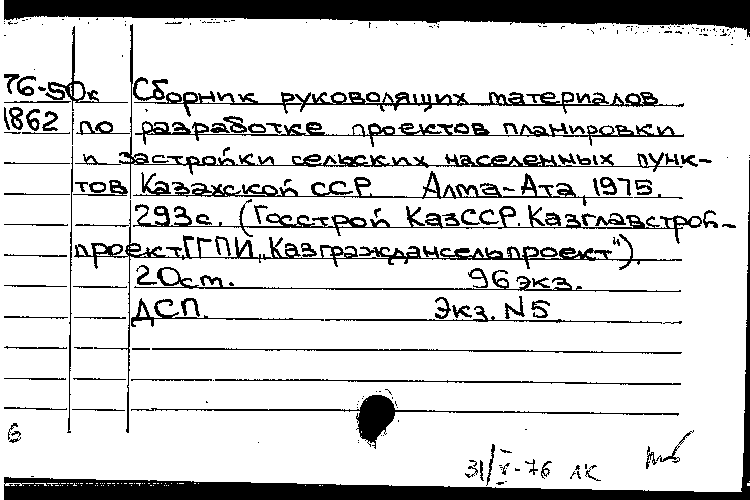 76-50к Сборник руководящих материалов
1862 по разработке проектов планировки
и застройки сельских населенных пунк-
тов Казахской ССР. Алма-Ата, 1975.
293с. (Госстрой КазССР. Казглавстрой-
проект. ГГПИ „Казграждансельпроект“).
20см. 96 экз.
ДСП. Экз. N5.
6
31/V-76 ЛК